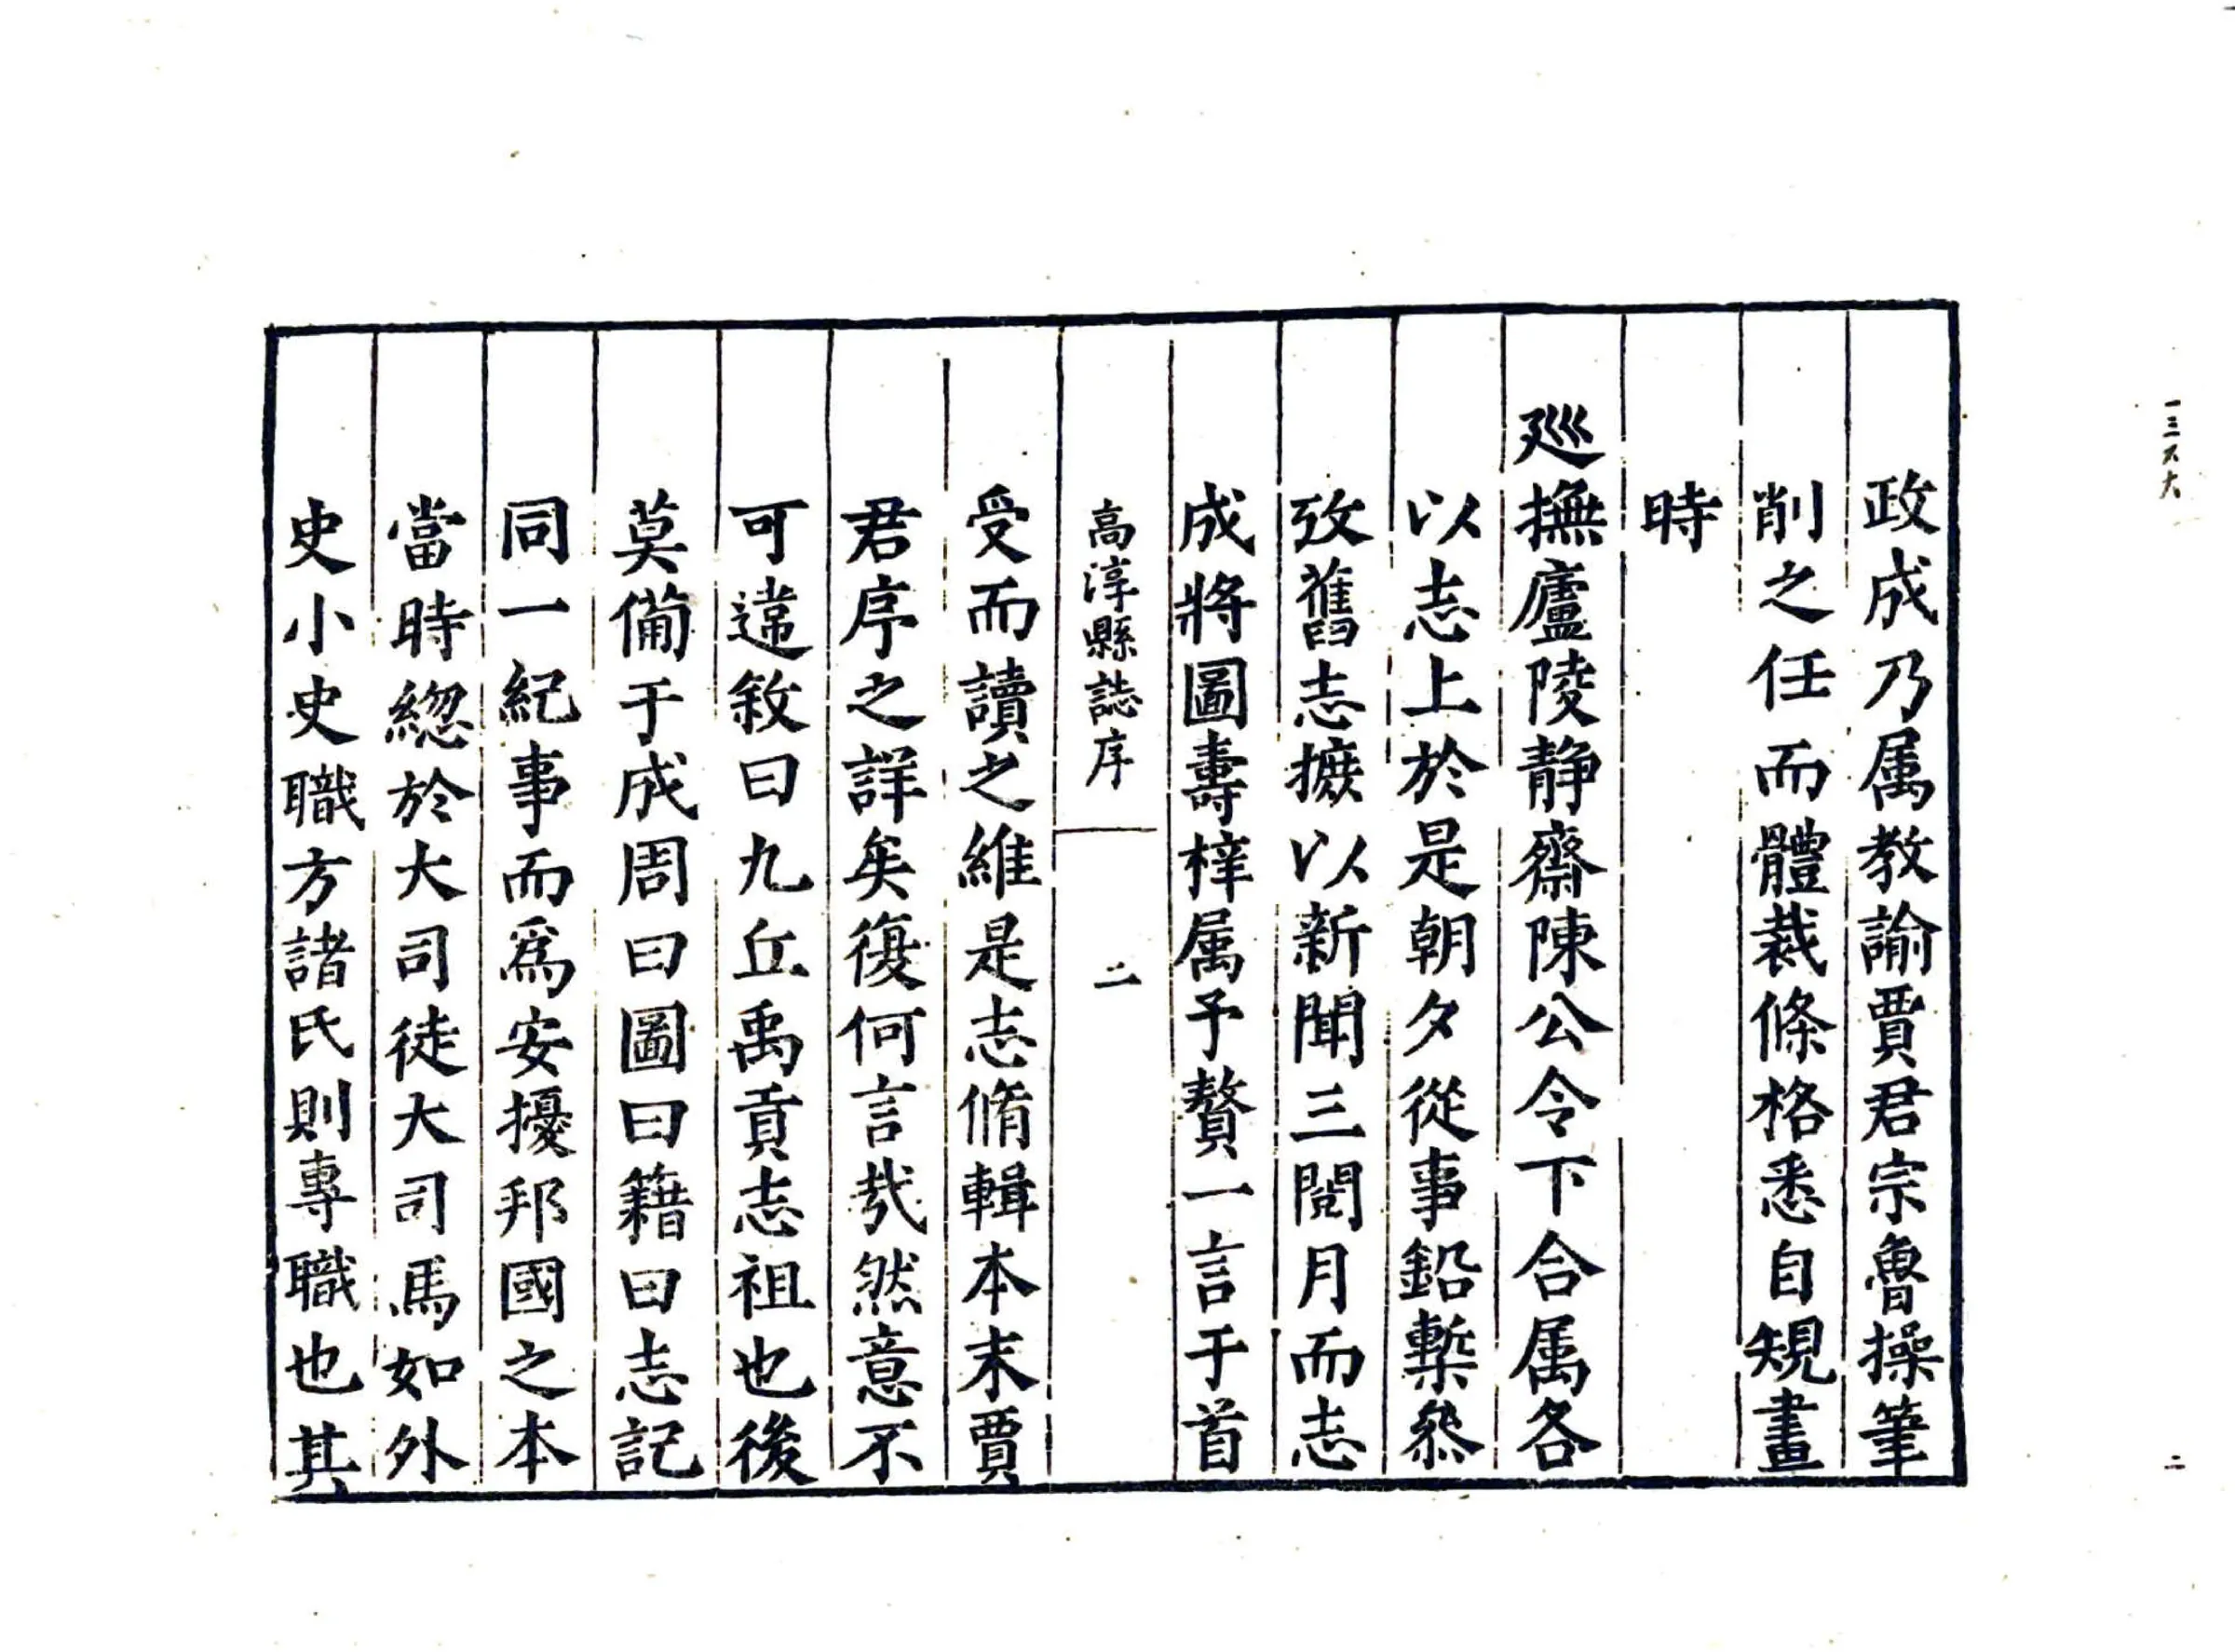 政成乃属教諭賈君宗魯操筆
削之任而體裁條格悉自規畫
時
廵撫廬陵静齋陳公令下合属各
以志上於是朝夕從事鉛槧叅
攷舊志摭以新聞三閱月而志
成將圖壽梓属予贅一言于首
高淳縣誌序 二
受而讀之維是志脩輯本末賈
君序之詳矣復何言㢤然意不
可違敘曰九丘禹貢志祖也後
莫備于成周曰圖曰籍曰志記
同一紀事而爲安擾邦國之本
當時緫於大司徒大司馬如外
史小史職方諸氏則專職也其
二